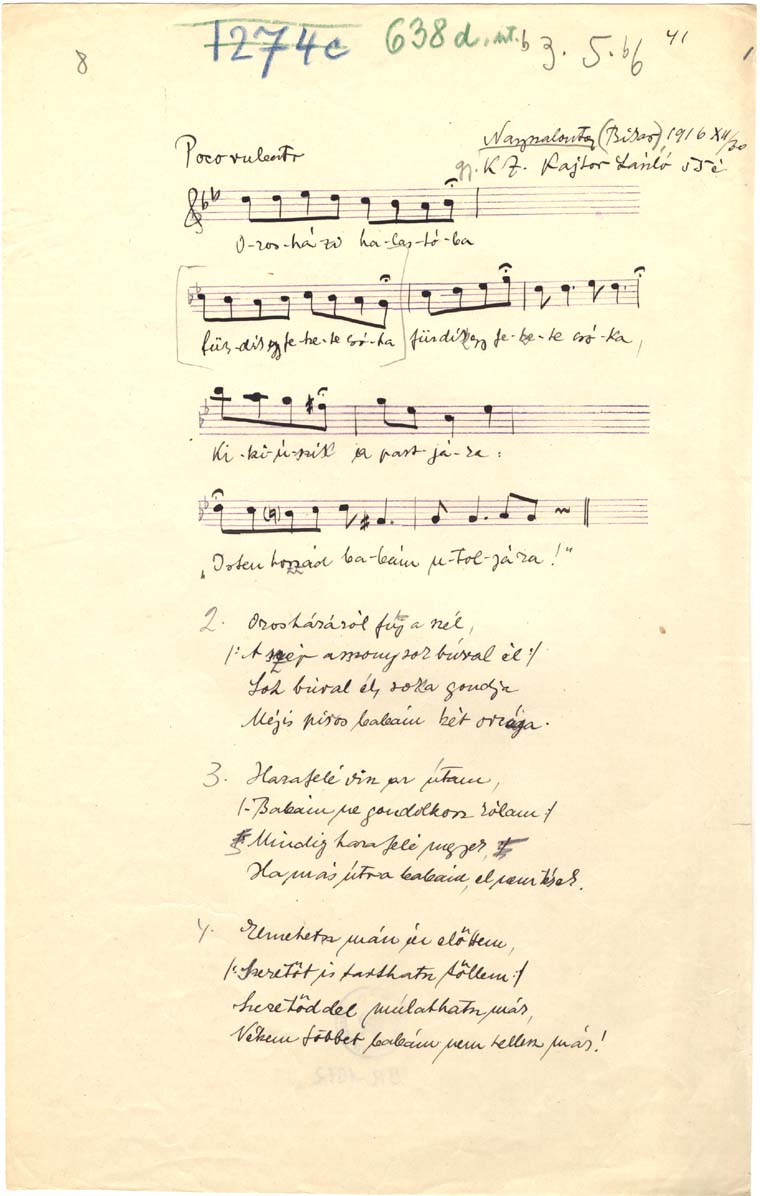 8 1274c 638 d. b 3. 5. b6 41
Nagyszalonta (Bihar) 1916 XII/30
Poco rubato gy. K Z. Kajtor László 55 é
O-ros-há-zi ha-las-tó-ba
für-dik egy fe-ke-te csó-ka fürdik egy fe-ke-te csó-ka,
Ki-ki-ú-szik a part-já-ra:
„Isten hozzád ba-bám u-tol-jára!"
2. Orosházáról fúj a szél,
/: A szép asszony sok búval él :/
Sok búval él, sok a gondja
Mégis piros babám két orcája.
3. Hazafelé visz az útam,
/: Babám ne gondolkozz rólam :/
Mindig hazafelé megyek,
Ha más útra babáid, el nem térek.
4. Elmehetsz mán én előttem,
/: Szeretőt is tarthatsz tőllem :/
Szeretőddel múlathatsz már,
Nékem többet babám nem kellesz már!